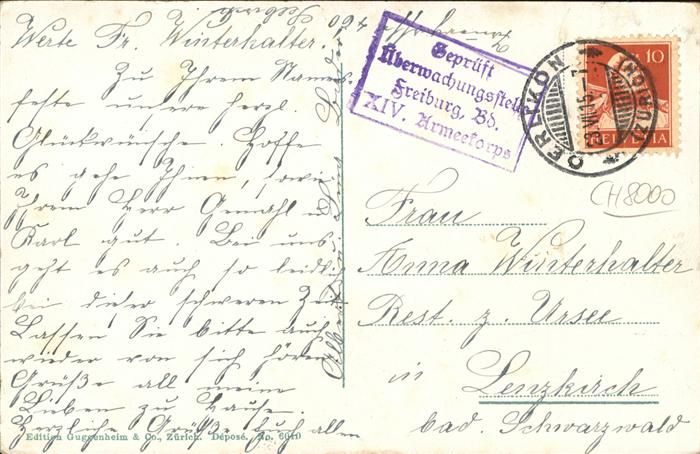 Werte Fr. Winterhalter!
Zu Ihrem Namens-
feste unsere herzl.
Glückwünsche. Hoffe
es gehe Ihnen, sowie
Ihrem Herr Gemahl u.
Karl gut. Bei uns
geht es auch so leidl.
bei dieser schweren Zeit
Lassen Sie bitte auch
wieder von sich hören
Grüße all meine
Lieben zu Hause.
Herzliche Grüße Euch allen
Edition Guggenheim & Co., Zürich. Déposé. No. 6049
Geprüft
Überwachungsstelle
Freiburg, Bd.
XIV. Armeekorps
OERLIKON
(ZÜRICH)
10
HELVETIA
CH8000
Frau
Anna Winterhalter
Rest. z. Ursee
in
Lenzkirch
bad. Schwarzwald